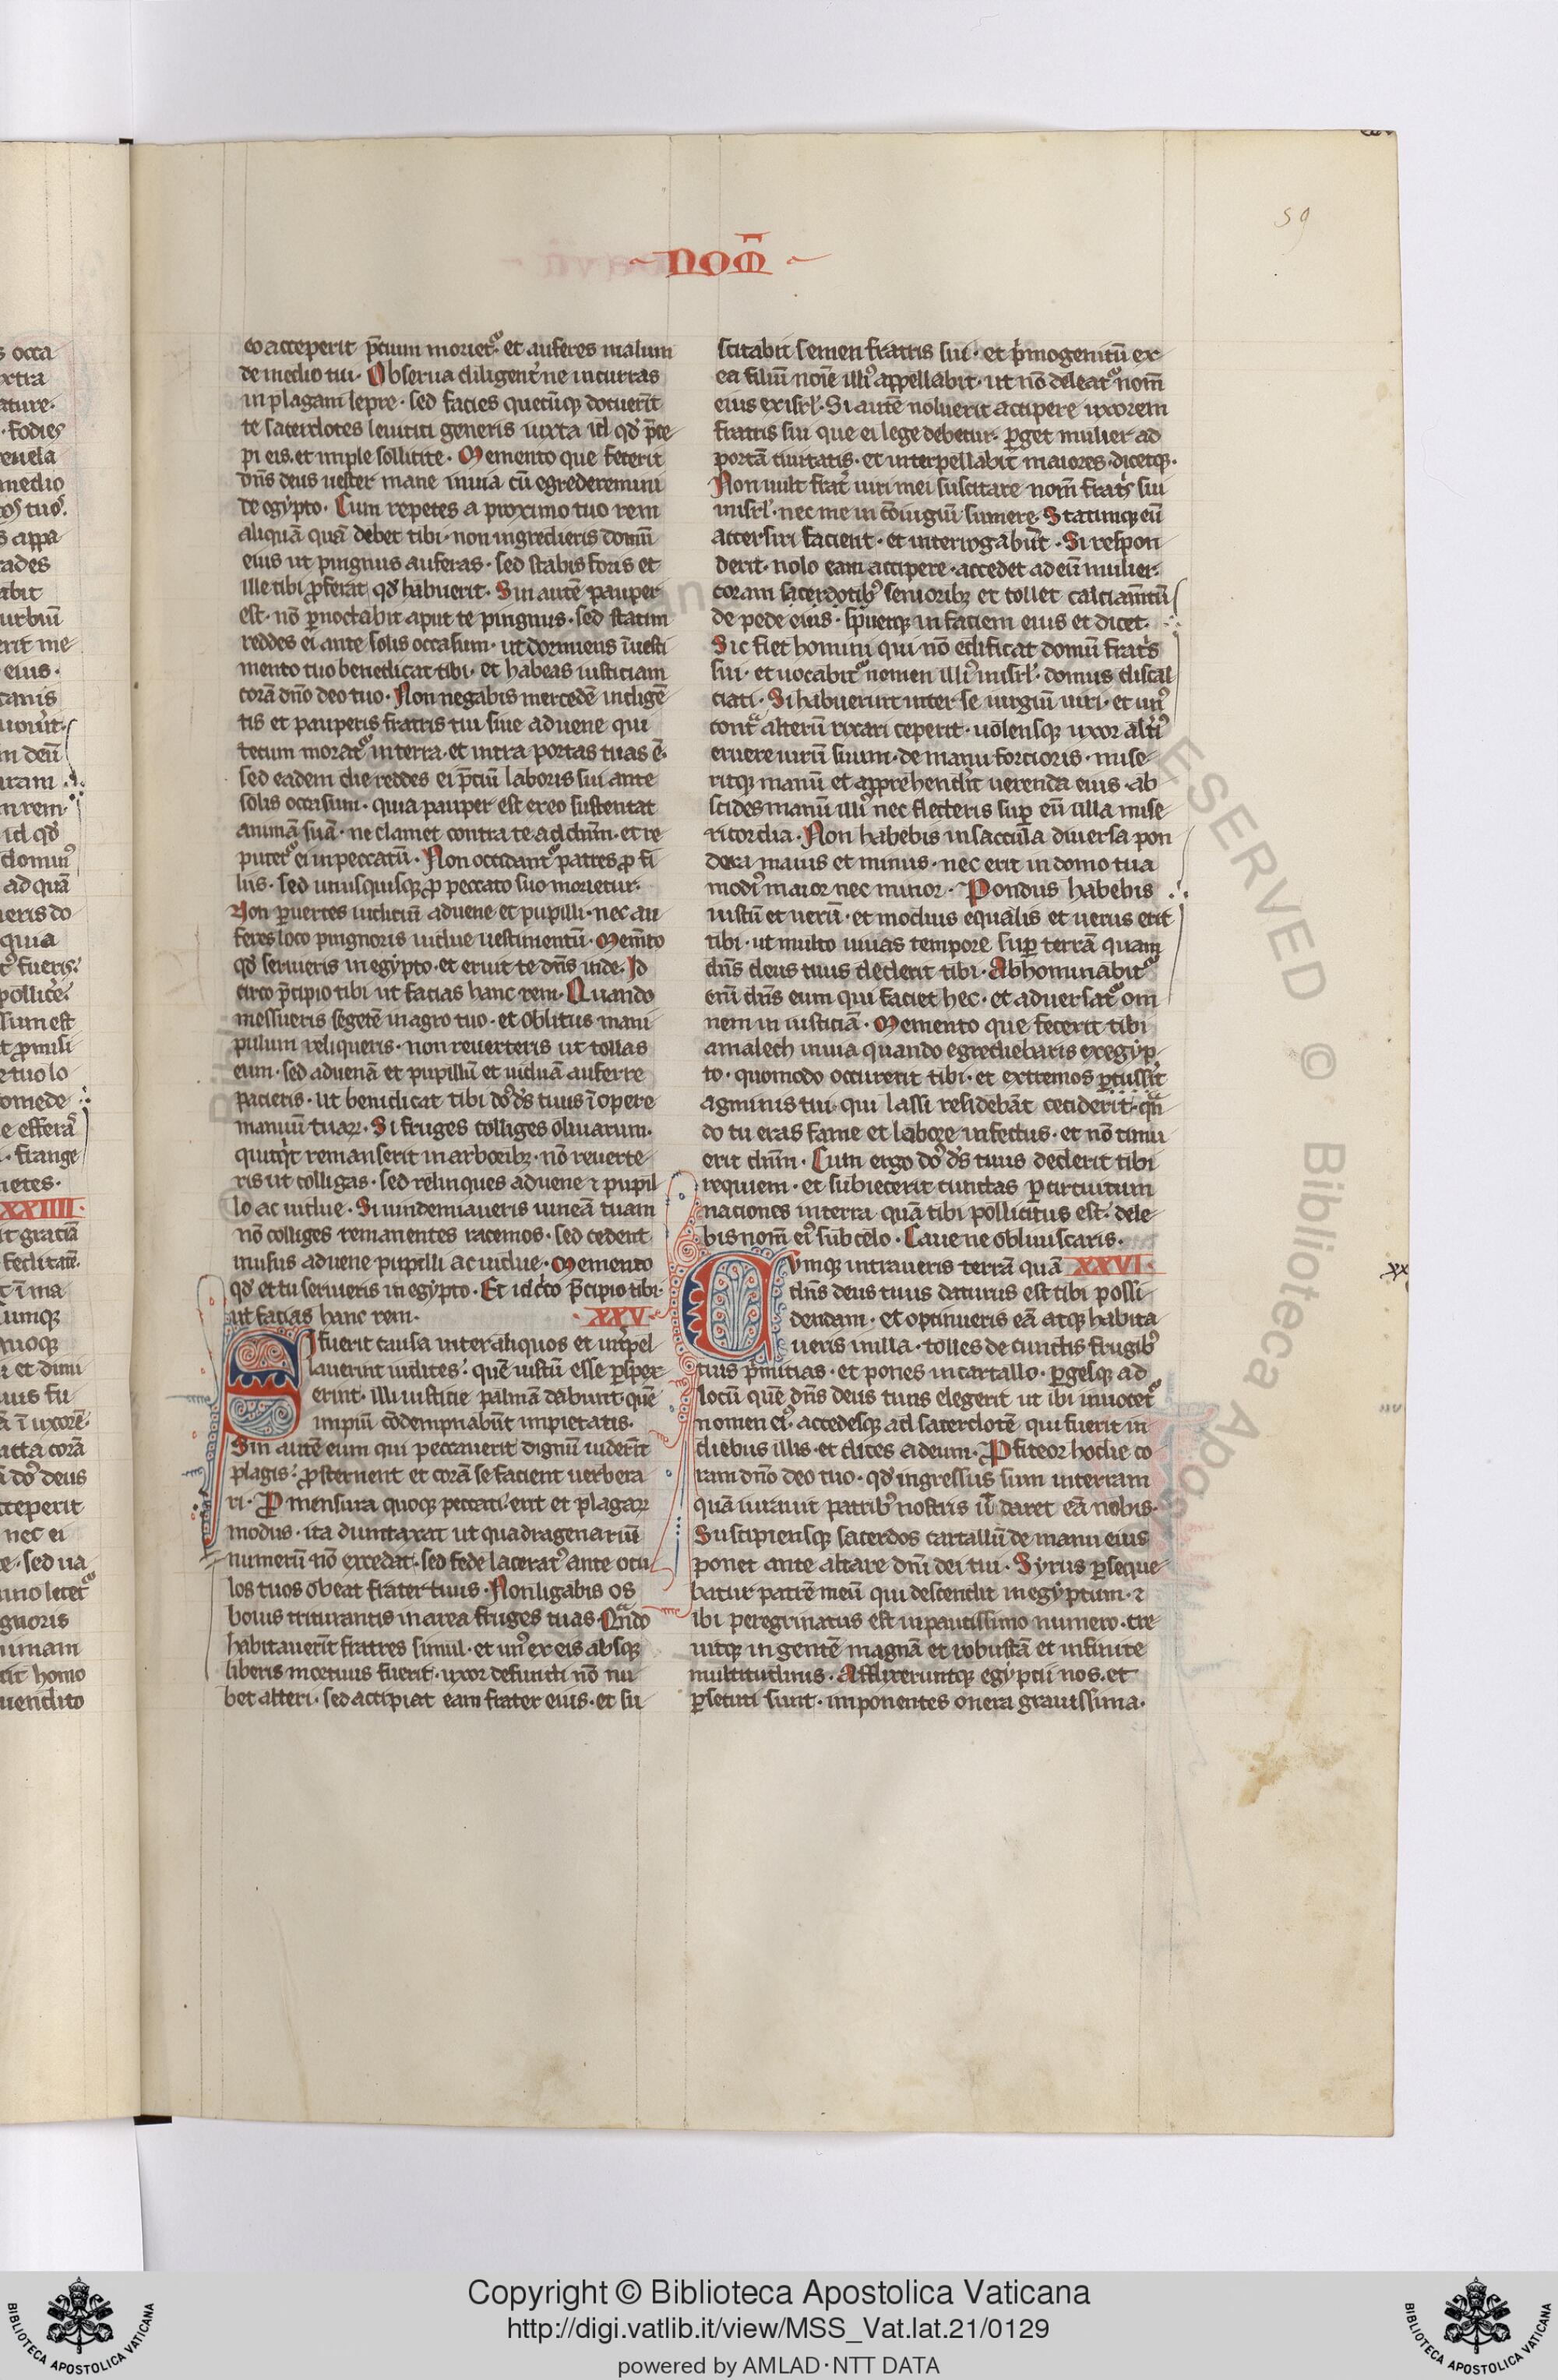 59
NOM̄
eo acceperit p̄cium moriet᷑· et auferes malum
de medio tui· Obserua diligent̉ ne incurras
in plagam lepre· sed facies quecūq; docuerīt
te sacerdotes leuitici generis iuxta id qd̓ p̄ce
pi eis· et imple sollicite· Memento que fecerit
dn̄s deus uester marie in uia cū egrederemini
de egypto· Cum repetes a proximo tuo rem
aliquā quā debet tibi· non ingredieris domū
eius ut pingnus auferas· sed stabis foris et
ille tibi ꝓferat qd̓ habuerit· Sin autē pauper
est· nō ꝑnoctabit aput te pingnus· sed statim
reddes ei ante solis occasum· ut dormiens ī uesti
mento tuo benedicat tibi· et habeas iusticiam
corā dn̄o deo tuo· Non negabis mercedē indigē
tis et pauperis fratris tui siue aduene qui
tecum morat᷑ in terra· et intra portas tuas ē·
sed eadem die reddes ei p̄ciū laboris sui ante
solis occasum· quia pauper est et eo sustentat
animā suā· ne clamet contra te ad dn̄m· et re
putet᷑ ei in peccatū· Non occidant᷑ patres ꝓ fi
liis· sed unusquisq; ꝓ peccato suo morietur·
Non ꝑuertes iudiciū aduene et pupilli· nec au
feres loco pingnoris uidue uestimentū· Mem̄to
qd̓ seruieris in egypto· et eruit te dn̄s inde· Id
circo p̄cipio tibi ut facias hanc rem· Quando
messueris segetē in agro tuo· et oblitus mani
pulum reliqueris· non reuerteris ut tollas
eum· sed aduenā et pupillū et uiduā auferre
pacieris· ut benedicat tibi do᷒ d̄s tuus ī opere
manuū tuaꝝ· Si fruges colliges oliuarum·
quicq̇t remanserit in arboribꝫ· nō reuerte
ris ut colligas· sed relinques aduene ⁊ pupil
lo ac uidue· Si uindemiaueris uineā tuam
nō colliges remanentes racemos· sed cedent
in usus aduene pupilli ac uidue· Memento
qd̓ et tu seruieris in egypto· Et idc̄co p̄cipio tibi·
ut facias hanc rem· XXV·
Si fuerit causa inter aliquos et int̓pel
lauerint iudices· quē iustū esse ꝑspex
erint· illi iusticie palmā dabunt· quē
impiū cōdempnabūt impietatis·
Sin autē eum qui peccauerit dignū uiderīt
plagis· ꝓsternent et corā se facient uerbera
ri· Pro mensura quoq; peccati· erit et plagaꝝ
modus· ita dumtaxat ut quadragenariū
numerū nō excedat· sed fede lacerat᷒ ante ocu
los tuos obeat frater tuus· Non ligabis os
bouis triturantis in area fruges tuas· Qn̄do
habitauerīt fratres simul· et un᷒ ex eis absq;
liberis mortuus fuerit· uxor defuncti nō nu
bet alteri· sed accipiat eam frater eius· et su
scitabit semen fratris sui· et p̓mogenitū ex
ea filiū noīe illi᷒ appellabit· ut nō deleat᷑ nom̄
eius ex isrl̓· Si autē noluerit accipere uxorem
fratris sui que ei lege debetur· ꝑget mulier ad
portā ciuitatis· et interpellabit maiores dicetq;·
Non uult frat̓ uiri mei suscitare nom̄ frat̓s sui
in isrl̓· nec me in cōiugiū sumere· Statimq; eū
accersiri facient· et interrogabūt· Si respon
derit· nolo eam accipere· accedet ad eū mulier·
coram sacerdotib᷒ senioribꝫ et tollet calciam̄tū
de pede eius· spuetq; in faciem eius et dicet·
Sic fiet homini qui nō edificat domū frat̓s
sui· et uocabit᷑ nomen illi᷒ in isrl̓· domus discal
ciati· Si habuerint inter se iurgiū uiri· et un᷒
cont̓ alterū rixari ceperit· uolensq; uxor alt̓i᷒
eruere uirū suum· de manu forcioris· mise
ritq; manū et apprehendīt uerenda eius· ab
scides manū illi᷒ nec flecteris suꝑ eū ulla mise
ricordia· Non habebis in sacculā diuersa pon
dera maius et minus· nec erit in domo tua
modi᷒ maior nec minor· Pondus habebis
iustū et uerū· et modius equalis et uerus erit
tibi· ut multo uiuas tempore suꝑ terrā quam
dn̄s deus tuus dederit tibi· Abhominabit᷑
enī dn̄s eum qui faciet hec· et aduersat᷑ om
nem iniusticiā· Memento que fecerit tibi
amalech in uia quando egrediebaris ex egyp
to· quomodo occurrerit tibi· et extremos ꝑcusserit
agminis tui· qui lassi residebāt ceciderit· qn̄
do tu eras fame et labore infectus· et nō timu
erit dn̄m· Cum ergo do᷒ d̄s tuus dederit tibi
requiem· et subiecerit cunctas ꝑ circuitum
naciones in terra quā tibi pollicitus est· dele
bis nom̄ ei᷒ sub celo· Caue ne obliuiscaris·
Cumq; intraueris terrā quā XXVI·
dn̄s deus tuus daturus est tibi possi
dendam· et optinueris eā atq; habita
ueris in illa· tolles de cunctis frugib᷒
tuis p̓micias· et pones in cartallo· ꝑgesq; ad
locū quē dn̄s deus tuus elegerit ut ibi inuocet᷑
nomen ei᷒· accedesq; ad sacerdotē qui fuerit in
diebus illis· et dices ad eum· Ꝓfiteor hodie co
ram dn̄o deo tuo· qd̓ ingressus sum in terram
quā iurauit patrib᷒ nostris ut daret eā nobis·
Suscipiensq; sacerdos cartallū de manu eius
ponet ante altare dn̄i dei tui· Syrus ꝑseque
batur patrē meū qui descendit in egyptum· ⁊
ibi peregrinatus est in paucissimo numero· cre
uitq; in gentē magnā et robustā et infinite
multitudinis· Afflixeruntq; egyptii nos· et
ꝑsecuti sunt· imponentes onera grauissima·
Copyright © Biblioteca Apostolica Vaticana
http://digi.vatlib.it/view/MSS_Vat.lat.21/0129
powered by AMLAD·NTT DATA
BIBLIOTECA APOSTOLICA VATICANA
BIBLIOTECA APOSTOLICA VATICANA